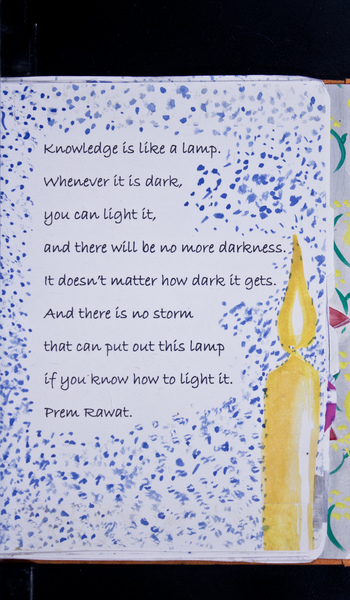 Knowledge is like a lamp.
Whenever it is dark,
you can light it,
and there will be no more darkness.
It doesn't matter how dark it gets.
And there is no storm
that can put out this lamp
if you know how to light it.
Prem Rawat.